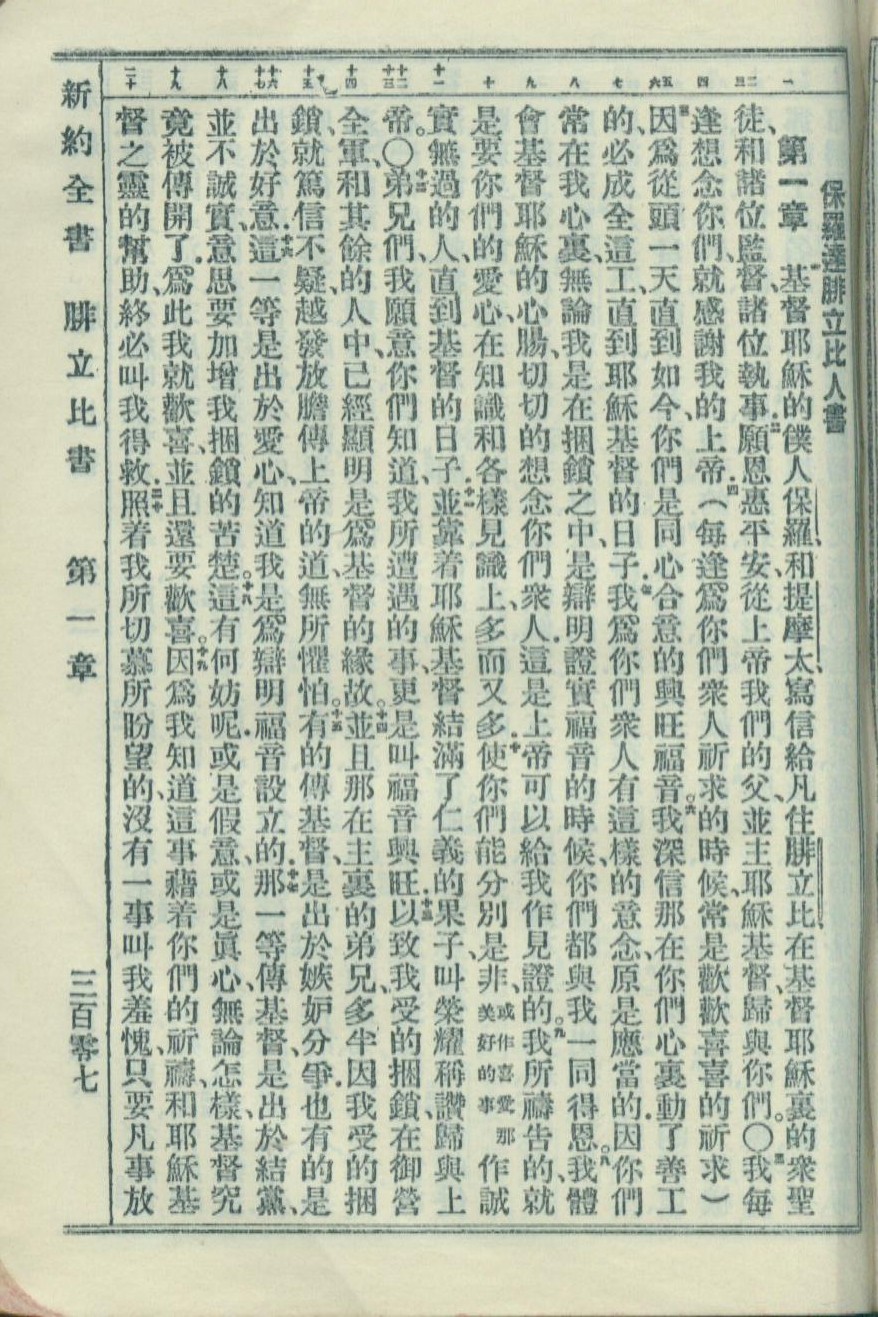 保羅達腓立比人書
一
二 三
四
五 六
七
八
九
十
十一
十二 十三
十四
十五
十六 十七
十八
十九
二十
第一章 基督耶穌的僕人保羅、和提摩太寫信給凡住腓立比在基督耶穌裏的衆聖
徒、和諸位監督、諸位執事、願恩惠平安、從上帝我們的父、並主耶穌基督、歸與你們。〇我每
逢想念你們、就感謝我的上帝(每逢爲你們衆人祈求的時候、常是歡歡喜喜的祈求)
因爲從頭一天直到如今、你們是同心合意的興旺福音。我深信那在你們心裏動了善工
的、必成全這工、直到耶穌基督的日子。我爲你們衆人有這樣的意念、原是應當的、因你們
常在我心裏、無論我是在捆鎖之中、是辯明證實福音的時候、你們都與我一同得恩。我體
會基督耶穌的心腸、切切的想念你們衆人、這是上帝可以給我作見證的。我所禱告的、就
是要你們的愛心、在知識和各樣見識上、多而又多、使你們能分別是非、或作喜愛那美好的事作誠
實無過的人、直到基督的日子、並靠着耶穌基督結滿了仁義的果子、叫榮耀稱讚歸與上
帝。〇弟兄們、我願意你們知道、我所遭遇的事、更是叫福音興旺、以致我受的捆鎖、在御營
全軍、和其餘的人中、已經顯明是爲基督的緣故。並且那在主裏的弟兄、多半因我受的捆
鎖、就篤信不疑、越發放膽傳上帝的道、無所懼怕。有的傳基督、是出於嫉妒分爭、也有的是
出於好意。這一等是出於愛心、知道我是爲辯明福音設立的、那一等傳基督、是出於結黨、
並不誠實、意思要加增我捆鎖的苦楚。這有何妨呢、或是假意、或是眞心、無論怎樣、基督究
竟被傳開了、爲此我就歡喜、並且還要歡喜。因爲我知道這事藉着你們的祈禱、和耶穌基
督之靈的幫助、終必叫我得救。照着我所切慕所盼望的、沒有一事叫我羞愧、只要凡事放
新約全書 腓立比書 第一章 三百零七